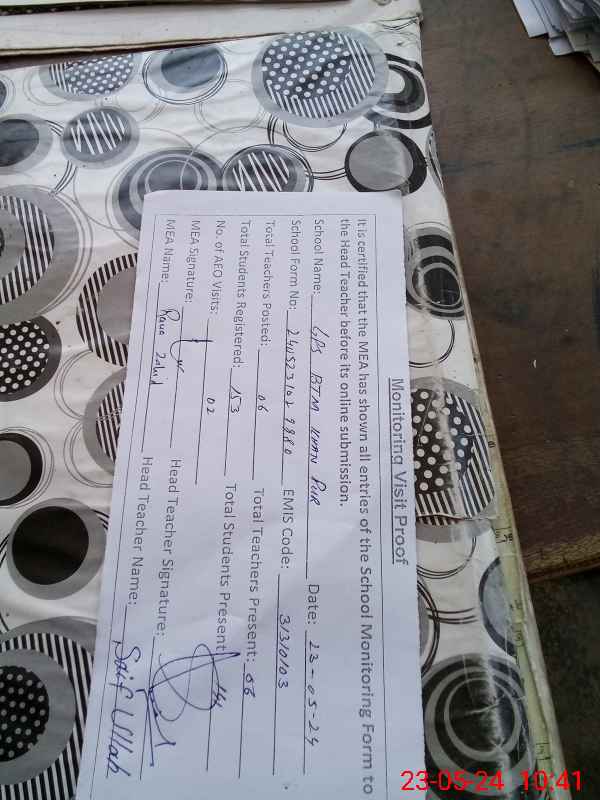 Monitoring Visit Proof
It is certified that the MEA has shown all entries of the School Monitoring Form to
the Head Teacher before its online submission.
School Name: GPS BTM KHAN PUR Date: 23-05-24
School Form No: EMIS Code: 31310103
Total Teachers Posted: 06 Total Teachers Present: 06
Total Students Registered: 153 Total Students Present:
No. of AEO Visits: 02
MEA Signature: Head Teacher Signature:
MEA Name: Rana Zahid Head Teacher Name: Saif Ullah
23-05-24 10:41